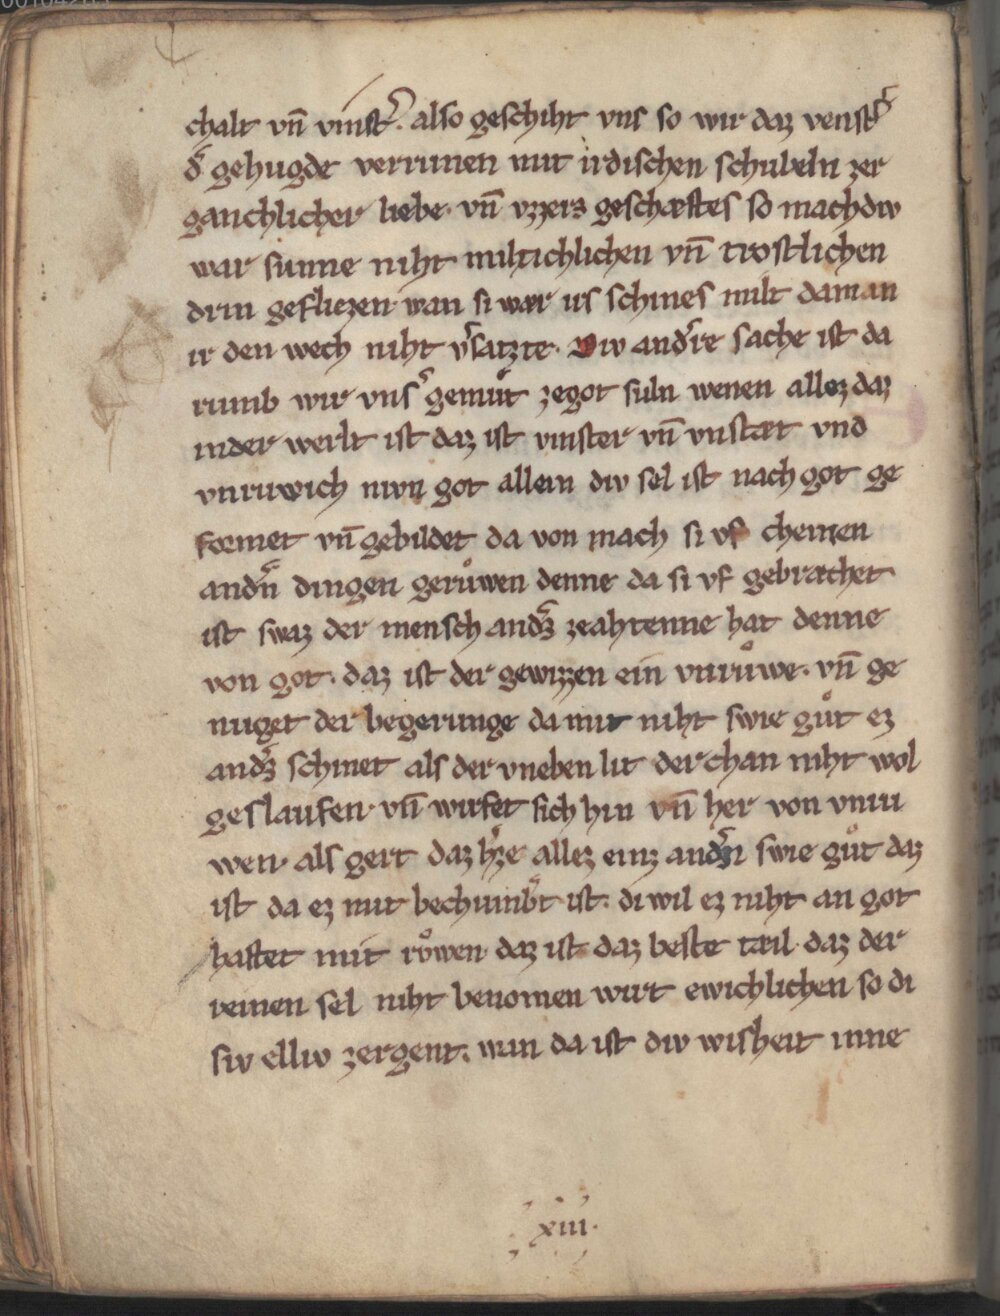 chalt vn̄ vinst͛. also geschiht vns so wir daz venst͛
d͛ gehugde verrinnen mit irdischen schubeln zer
ganchlicher liebe. vn̄ vzzers geschæftes so mach div
war sunne niht miltichlichen vn̄ trostlichen
drin gefliezen. wan si wær irs schines milt da man
ir den wech niht v͛satzte. Div and͛re sache ist da
rumb wir vns͛ gemuͦt zegot suln wenen allez daz
inder werlt ist daz ist vinster vn̄ vnstæt vnd
vnruwich nwn got allein div sel ist nach got ge
formet vn̄ gebildet da von mach si vf cheinen
and͛n dingen geruͦwen denne da si vf gebrachet
ist swaz der mensch and͛s zeahtenne hat denne
von got. daz ist der gewizzen ein vnruͦwe. vn̄ ge
nuget der begerunge da mit niht swie guͦt ez
and͛s schinet als der vneben lit der chan niht wol
geslaufen. vn̄ wirfet sich hin vn̄ her von vnru
wen. als gert daz h͛ze allez einz and͛n swie guͦt daz
ist da ez mit bechumb͛t ist. di wil ez niht an got
haftet mit roͮwen. daz ist daz beste tæil. daz der
reinen sel niht benomen wirt ewichlichen so di
siv elliv zergent. wan da ist div wisheit inne
xiii.